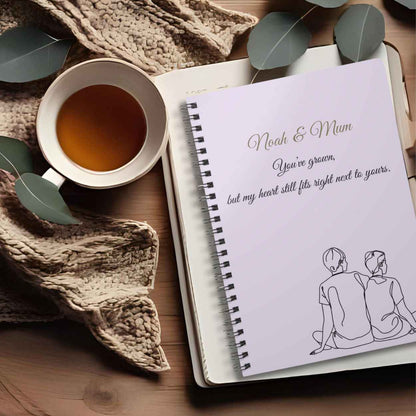 Noah & Mum
You've grown,
but my heart still fits right next to yours.